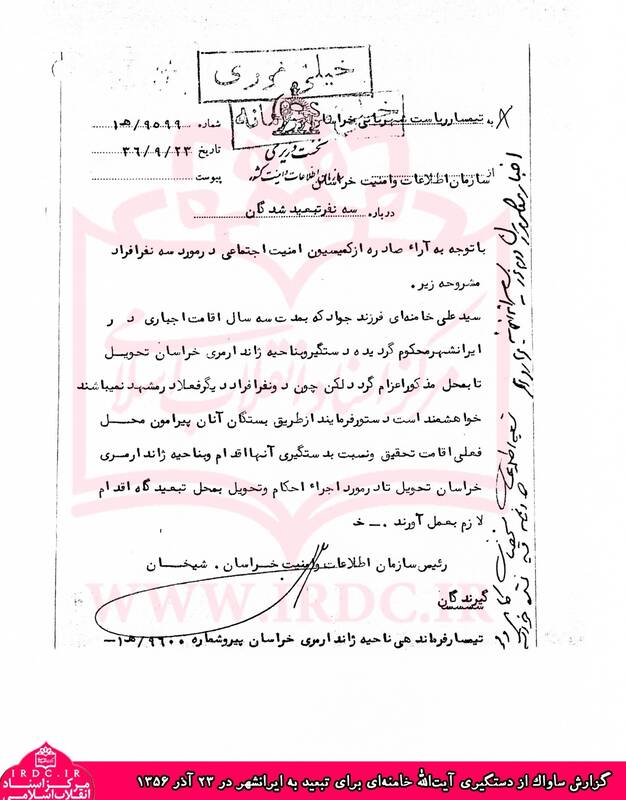 خیلی فوری
به تیمسار ریاست شهربانی خراسان
شماره ۹۵۹۹/هـ۱
نخست وزیری
تاریخ ۳۶/۹/۲۳
سازمان اطلاعات و امنیت کشور
از سازمان اطلاعات و امنیت خراسان
پیوست
درباره سه نفر تبعید شدگان
با توجه به آراء صادره از کمیسیون امنیت اجتماعی در مورد سه نفر افراد
مشروحه زیر.
سید علی خامنه‌ای فرزند جواد که بمدت سه سال اقامت اجباری در
ایرانشهر محکوم گردیده دستگیر و بناحیه ژاندارمری خراسان تحویل
تا بمحل مذکور اعزام گردد لکن چون دو نفر افراد دیگر فعلا در مشهد نمیباشند
خواهشمند است دستور فرمایند از طریق بستگان آنان پیرامون محل
فعلی اقامت تحقیق و نسبت بدستگیری آنها اقدام و بناحیه ژاندارمری
خراسان تحویل تا در مورد اجراء احکام و تحویل بمحل تبعیدگاه اقدام
لازم بعمل آورند. خ
رئیس سازمان اطلاعات و امنیت خراسان. شیخان
گیرندگان
تیمسار فرماندهی ناحیه ژاندارمری خراسان پیرو شماره ۹۶۰۰/هـ۱
مرکز اسناد انقلاب اسلامی
WWW.IRDC.IR
IRDC.IR
مرکز اسناد
انقلاب اسلامی
گزارش ساواک از دستگیری آیت‌الله خامنه‌ای برای تبعید به ایرانشهر در ۲۳ آذر ۱۳۵۶